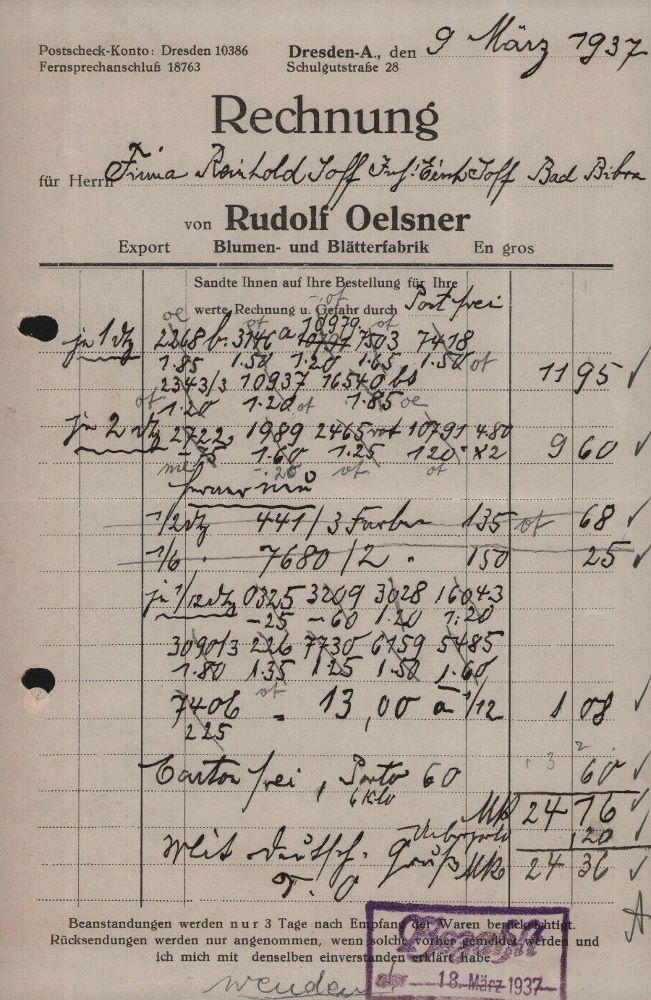 Postscheck-Konto: Dresden 10386
Fernsprechanschluß 18763
Dresden-A., den 9 März 1937
Schulgutstraße 28
Rechnung
für Herrn Firma Reinhold Bad Bibra
von Rudolf Oelsner
Export Blumen- und Blätterfabrik En gros
Sandte Ihnen auf Ihre Bestellung für Ihre
werte Rechnung u. Gefahr durch Post frei
je 1 dtz 2268 b. 3146 a 7503 7418
1.85 1.50 1.20 1.65 1.50 11 95
2343/3 10937 16540
1.20 1.20 1.85
je 2 dtz 2722 1989 2465 10791 4.80
-75 1.60 1.25 120 · x2 9 60
ferner neu
1/2 dtz 441/3 Farben 135 68
1/6 " 7680/2 " 150 25
je 1/12 dtz 0325 3209 3028 16043
-25 -60 1.20 1.20
3090/3 226 7730 6159 5485
1.80 1.35 1.25 1.50 1.60
7406 = 13,00 a 1/12 1 08
225
Carton frei, Porto 60 60
6 Klo
MK 24 16
20
Mit deutsch. Gruß MK 24 36
R. O
Beanstandungen werden nur 3 Tage nach Empfang der Waren berücksichtigt.
Rücksendungen werden nur angenommen, wenn solche vorher gemeldet werden und
ich mich mit denselben einverstanden erklärt habe.
18. März 1937
wenden